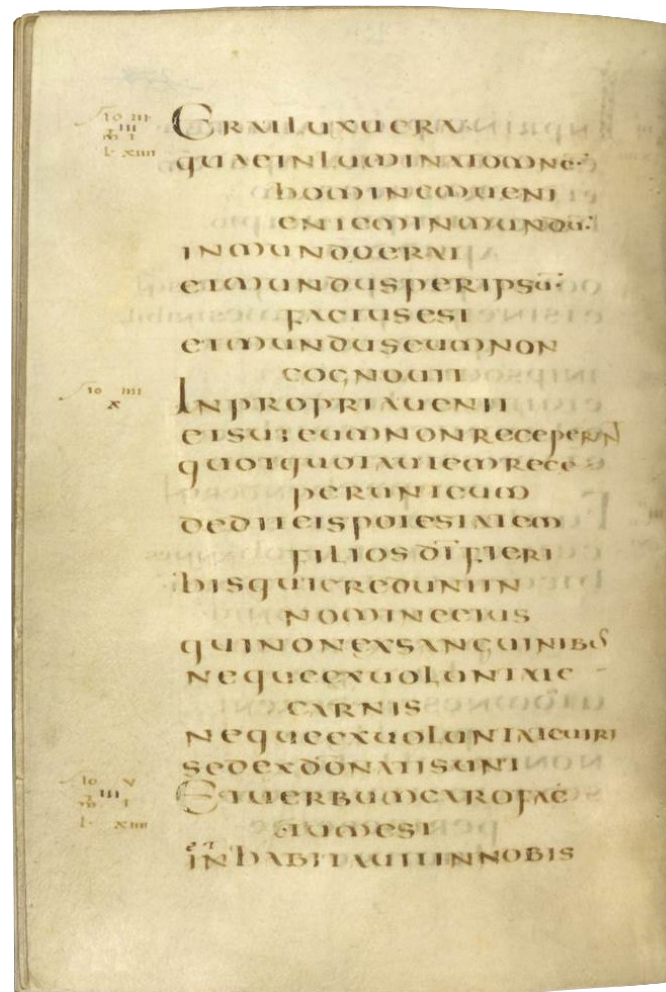 io iii
iii
m i
l xiiii
Erat lux uera
quae inluminat omne·
hominem ueni
entem in mundu·
in mundo erat
et mundus per ipsu·
factus est
et mundus eum non
cognouit
io iiii
x
In propria uenit
et sui eum non receperunt
quotquot autem rece
perunt eum
dedit eis potestatem
filios di fieri
his qui credunt in
nomine eius
qui non ex sanguinib
neque ex uoluntate
carnis
neque ex uoluntate uiri
sed ex do nati sunt
io v
iii
m i
l xiiii
Et uerbum caro fac
tum est
et inhabitauit in nobis